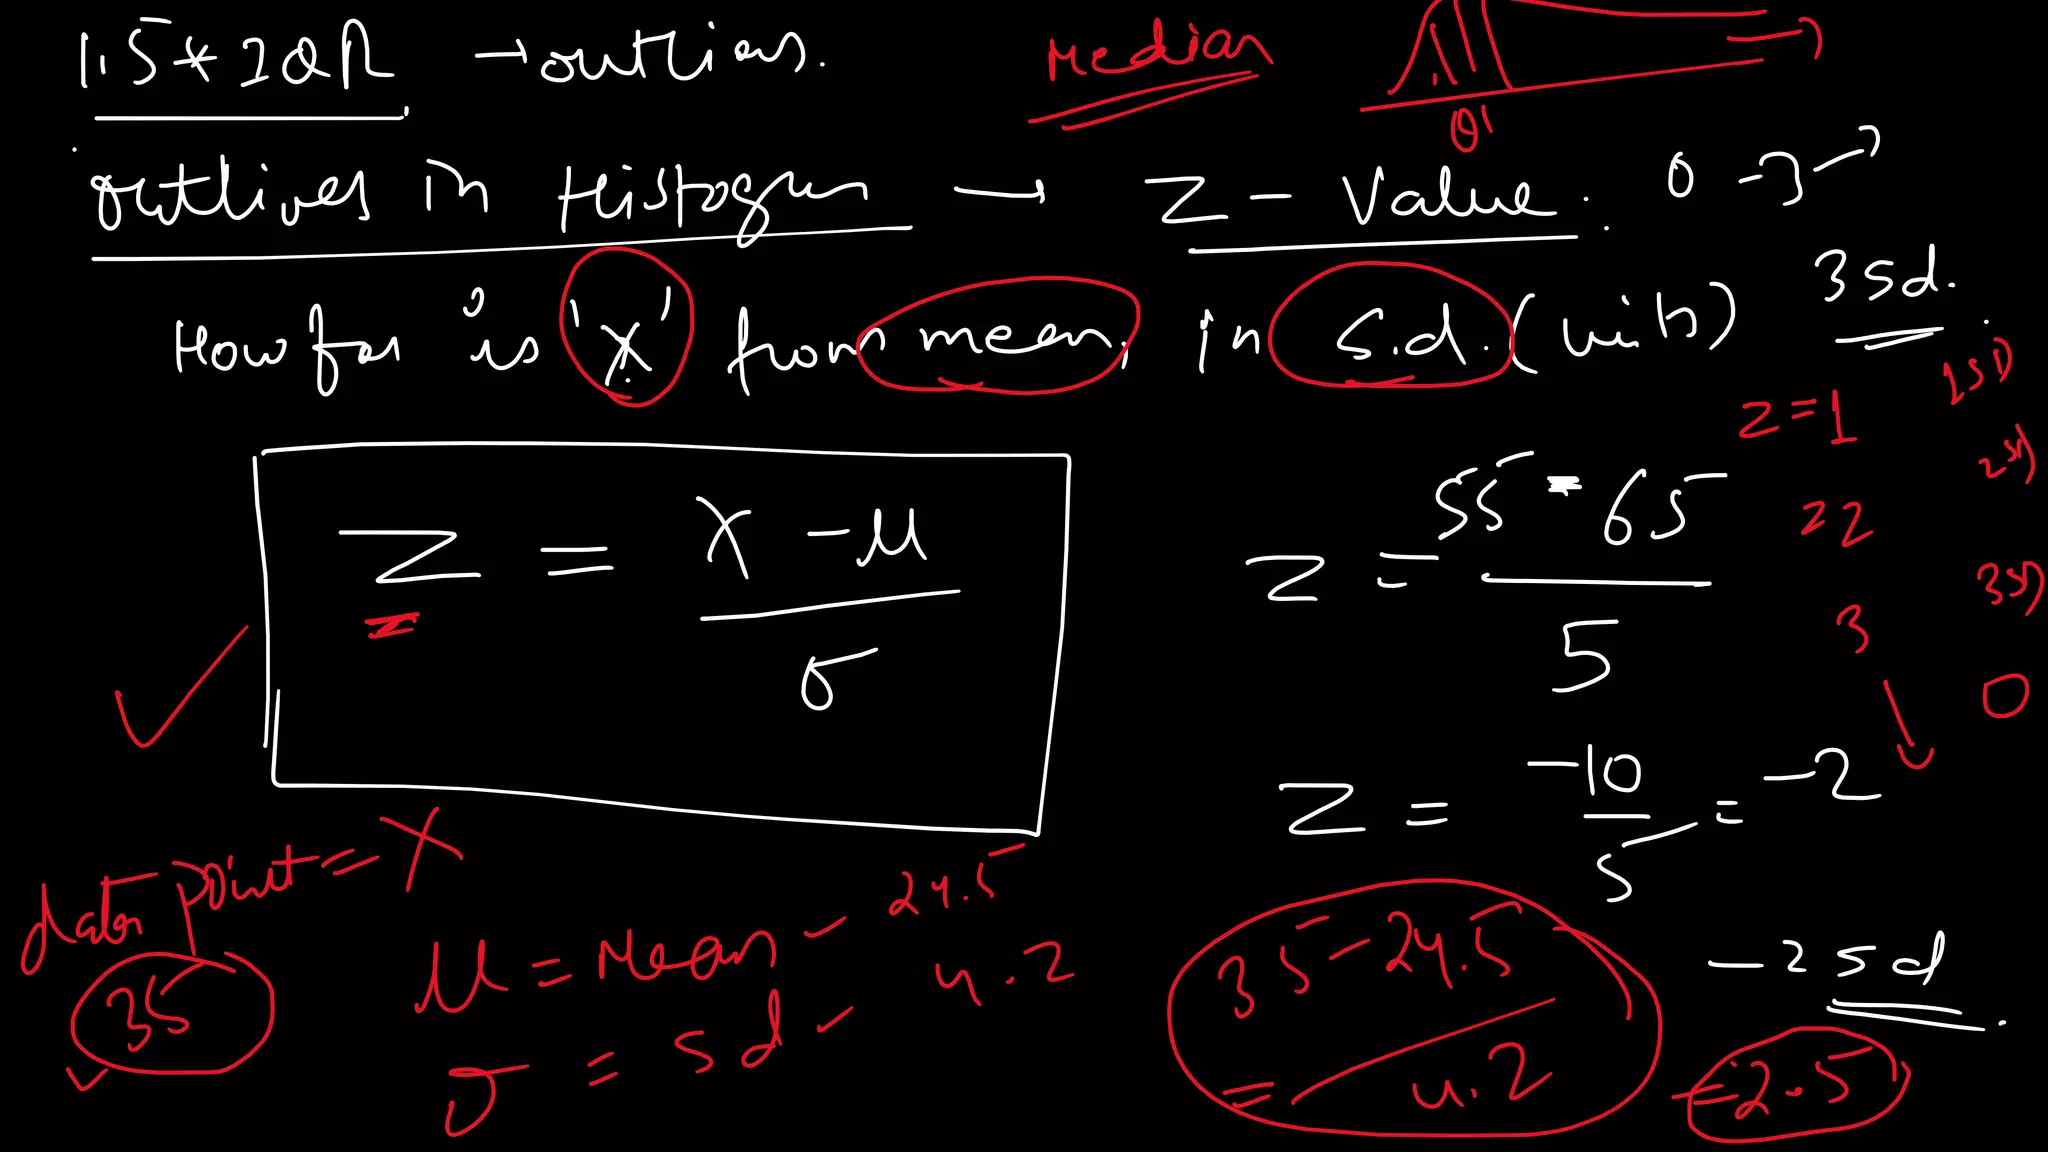 1.5*IQR → outliers.
Median
Q1
outliers in Histogram → Z - Value. 0 → 3 →
How far is 'X' from mean, in S.d. (units) 3 sd.
Z = X - μ / σ
Z = 55 - 65 / 5
Z = -10 / 5 = -2
-2 sd
z = 1 1SD
z 2 2SD
3 3SD
0
data point = X
35
μ = Mean - 24.5
σ = sd - 4.2
= 35 - 24.5 / 4.2 = 2.5